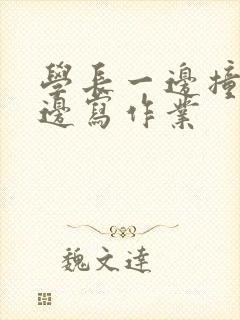 學長一邊撞
邊寫作業
魏文達